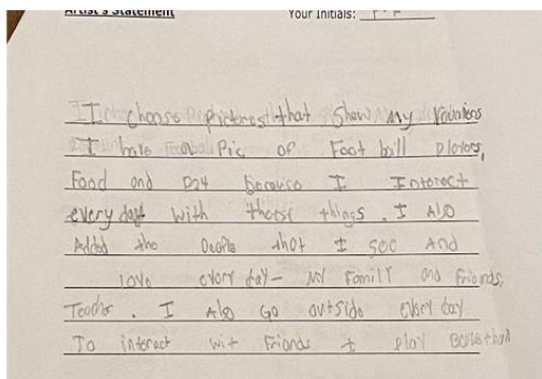 Artist's Statement Your Initials:
I choose pictures that show my
I have a Pic of Football players,
Food and because I Interact
every day with these things. I Also
Added the people that I see And
love every day- My Family and friends,
Teacher. I Also Go outside every day
To interact wit Friends + play